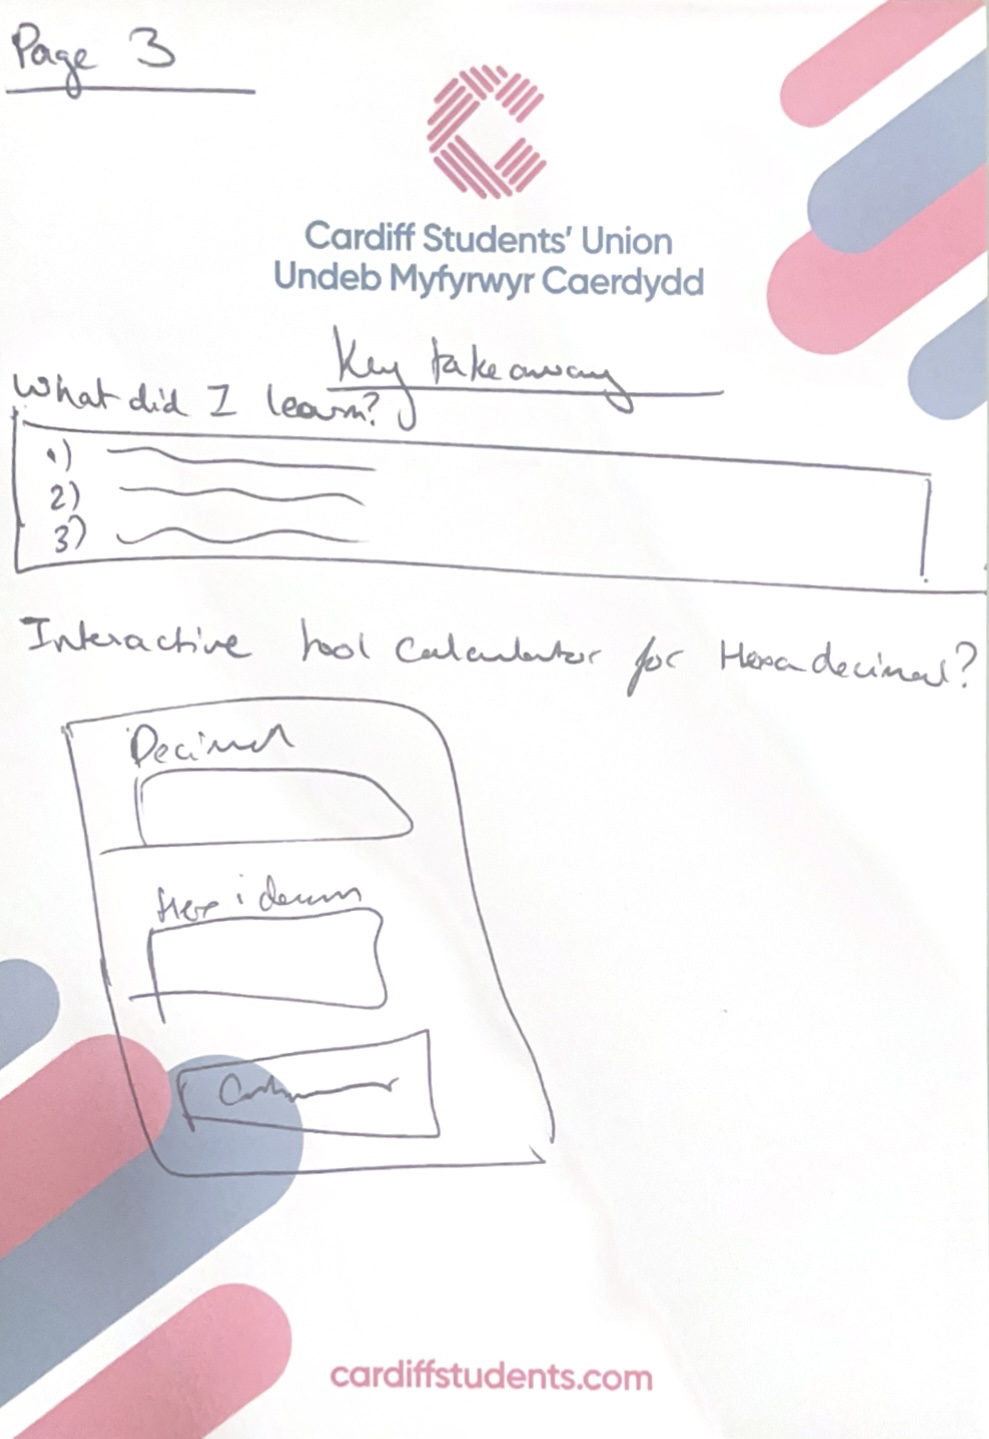 Page 3
Cardiff Students' Union
Undeb Myfyrwyr Caerdydd
Key takeaway
What did I learn?
1)
2)
3)
Interactive tool calculator for Hexadecimal?
Decimal
cardiffstudents.com